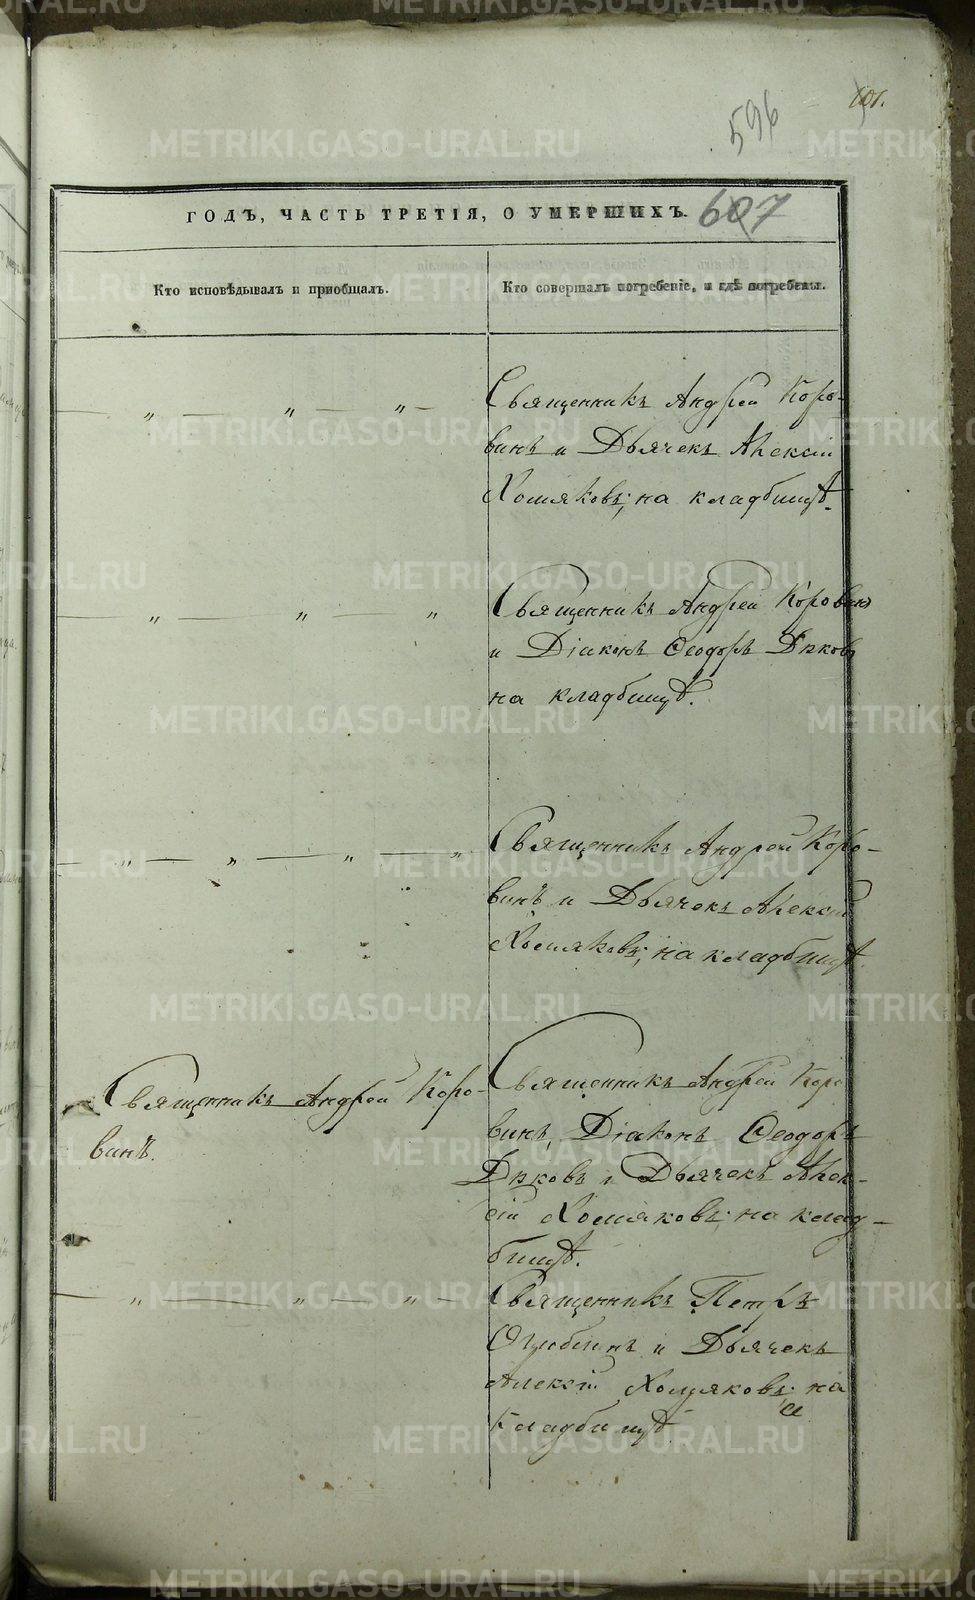 601.
596
ГОДЪ, ЧАСТЬ ТРЕТІЯ, О УМЕРШИХЪ.
607
Кто исповѣдывалъ и приобщалъ.
Кто совершалъ погребеніе, и гдѣ погребены.
— „ — „ — „ —
Священникъ Андрей Коро-
винъ и Дьячекъ Алексій
Хомяковъ; на кладбищѣ.
— „ — „ — „
Священникъ Андрей Коровинъ
и Діаконъ Ѳеодоръ
на кладбищѣ.
— „ — „ — „ — „
Священникъ Андрей Коро-
винъ и Дьячекъ Алексій
Хомяковъ; на кладбищѣ.
Священникъ Андрей Коро-
винъ.
Священникъ Андрей Коро
винъ, Діаконъ Ѳеодоръ
и Дьячекъ Алек-
сій Хомяковъ; на клад-
бищѣ.
— „ — „ — „ —
Священникъ Петръ
и Дьячекъ
Алексій Хомяковъ; на
кладбищѣ
METRIKI.GASO-URAL.RU